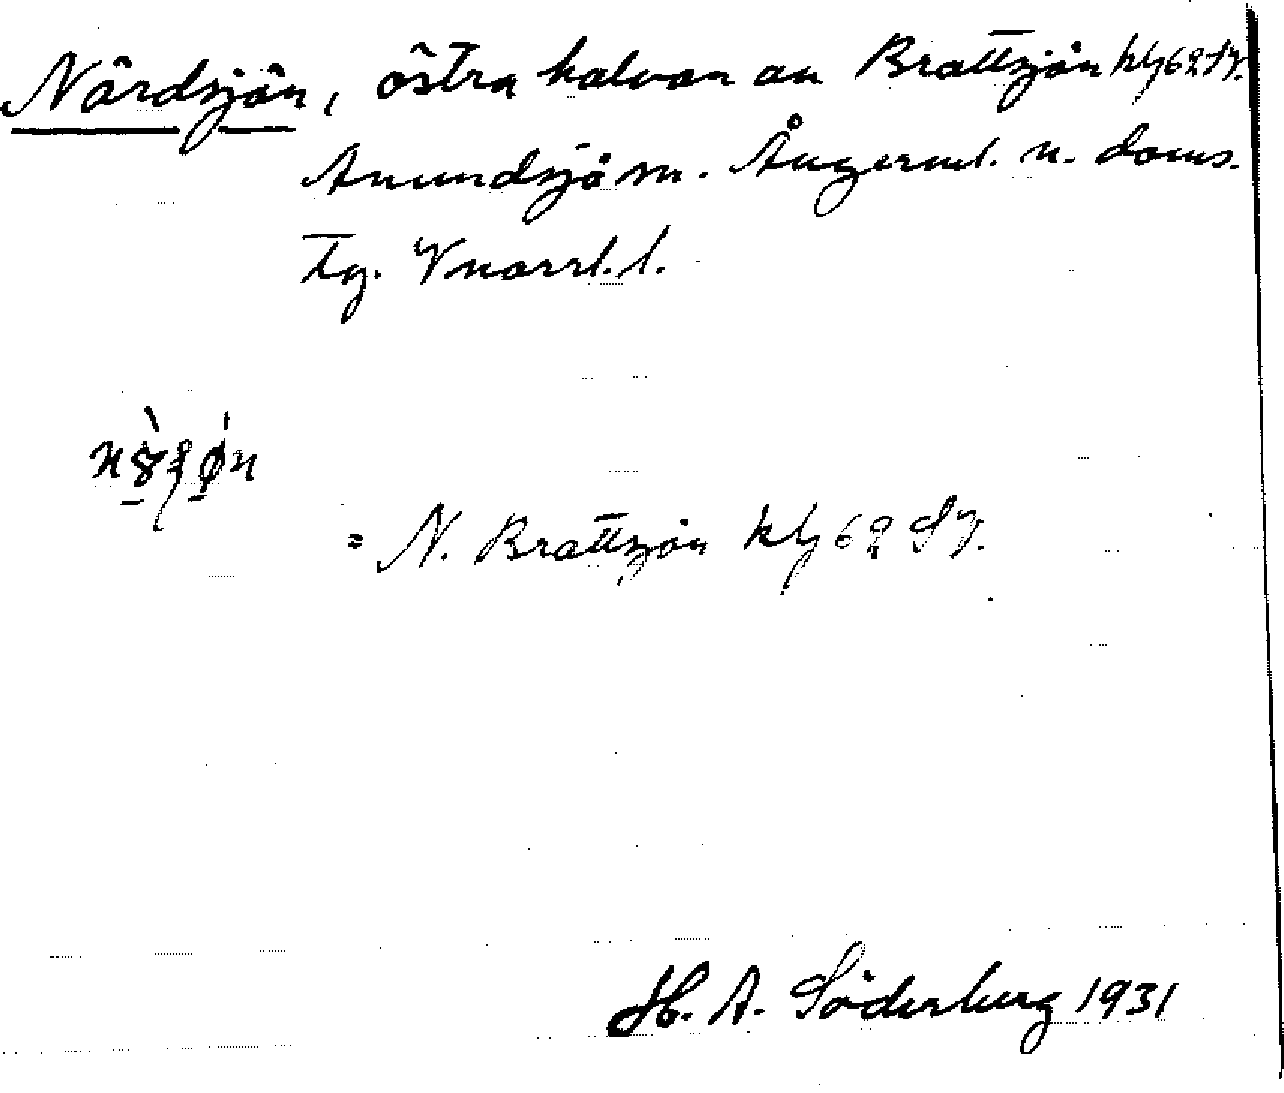 Nördsjön, östra halvan av Brattsjön kbl 62 Sy.
Anundsjö sn. Ångerml. n. doms.
tg. Vnorrl. l.
= N. Brattsjön kbl 62 Sy.
H. A. Söderberg 1931